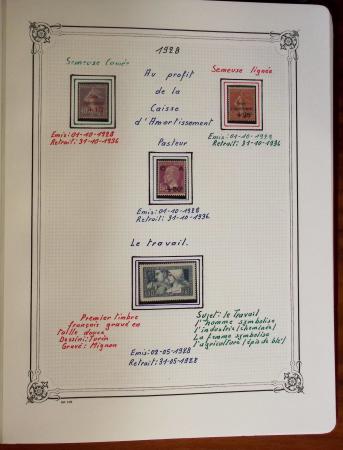 1928
Semeuse camée
Semeuse lignée
Au profit
de la
Caisse
d'Amortissement
Emis: 01-10-1928
Retrait: 31-10-1936
Emis: 01-10-1928
Retrait: 31-10-1936
Pasteur
Emis: 01-10-1928
Retrait: 31-10-1936
Le travail.
Premier timbre
français gravé en
taille douce
Dessin: Turin
Gravé: Mignon
Sujet: le Travail
l'homme symbolise
l'industrie (cheminée)
La femme symbolise
l'agriculture (épis de blé)
Emis: 02-05-1928
Retrait: 31-05-1928